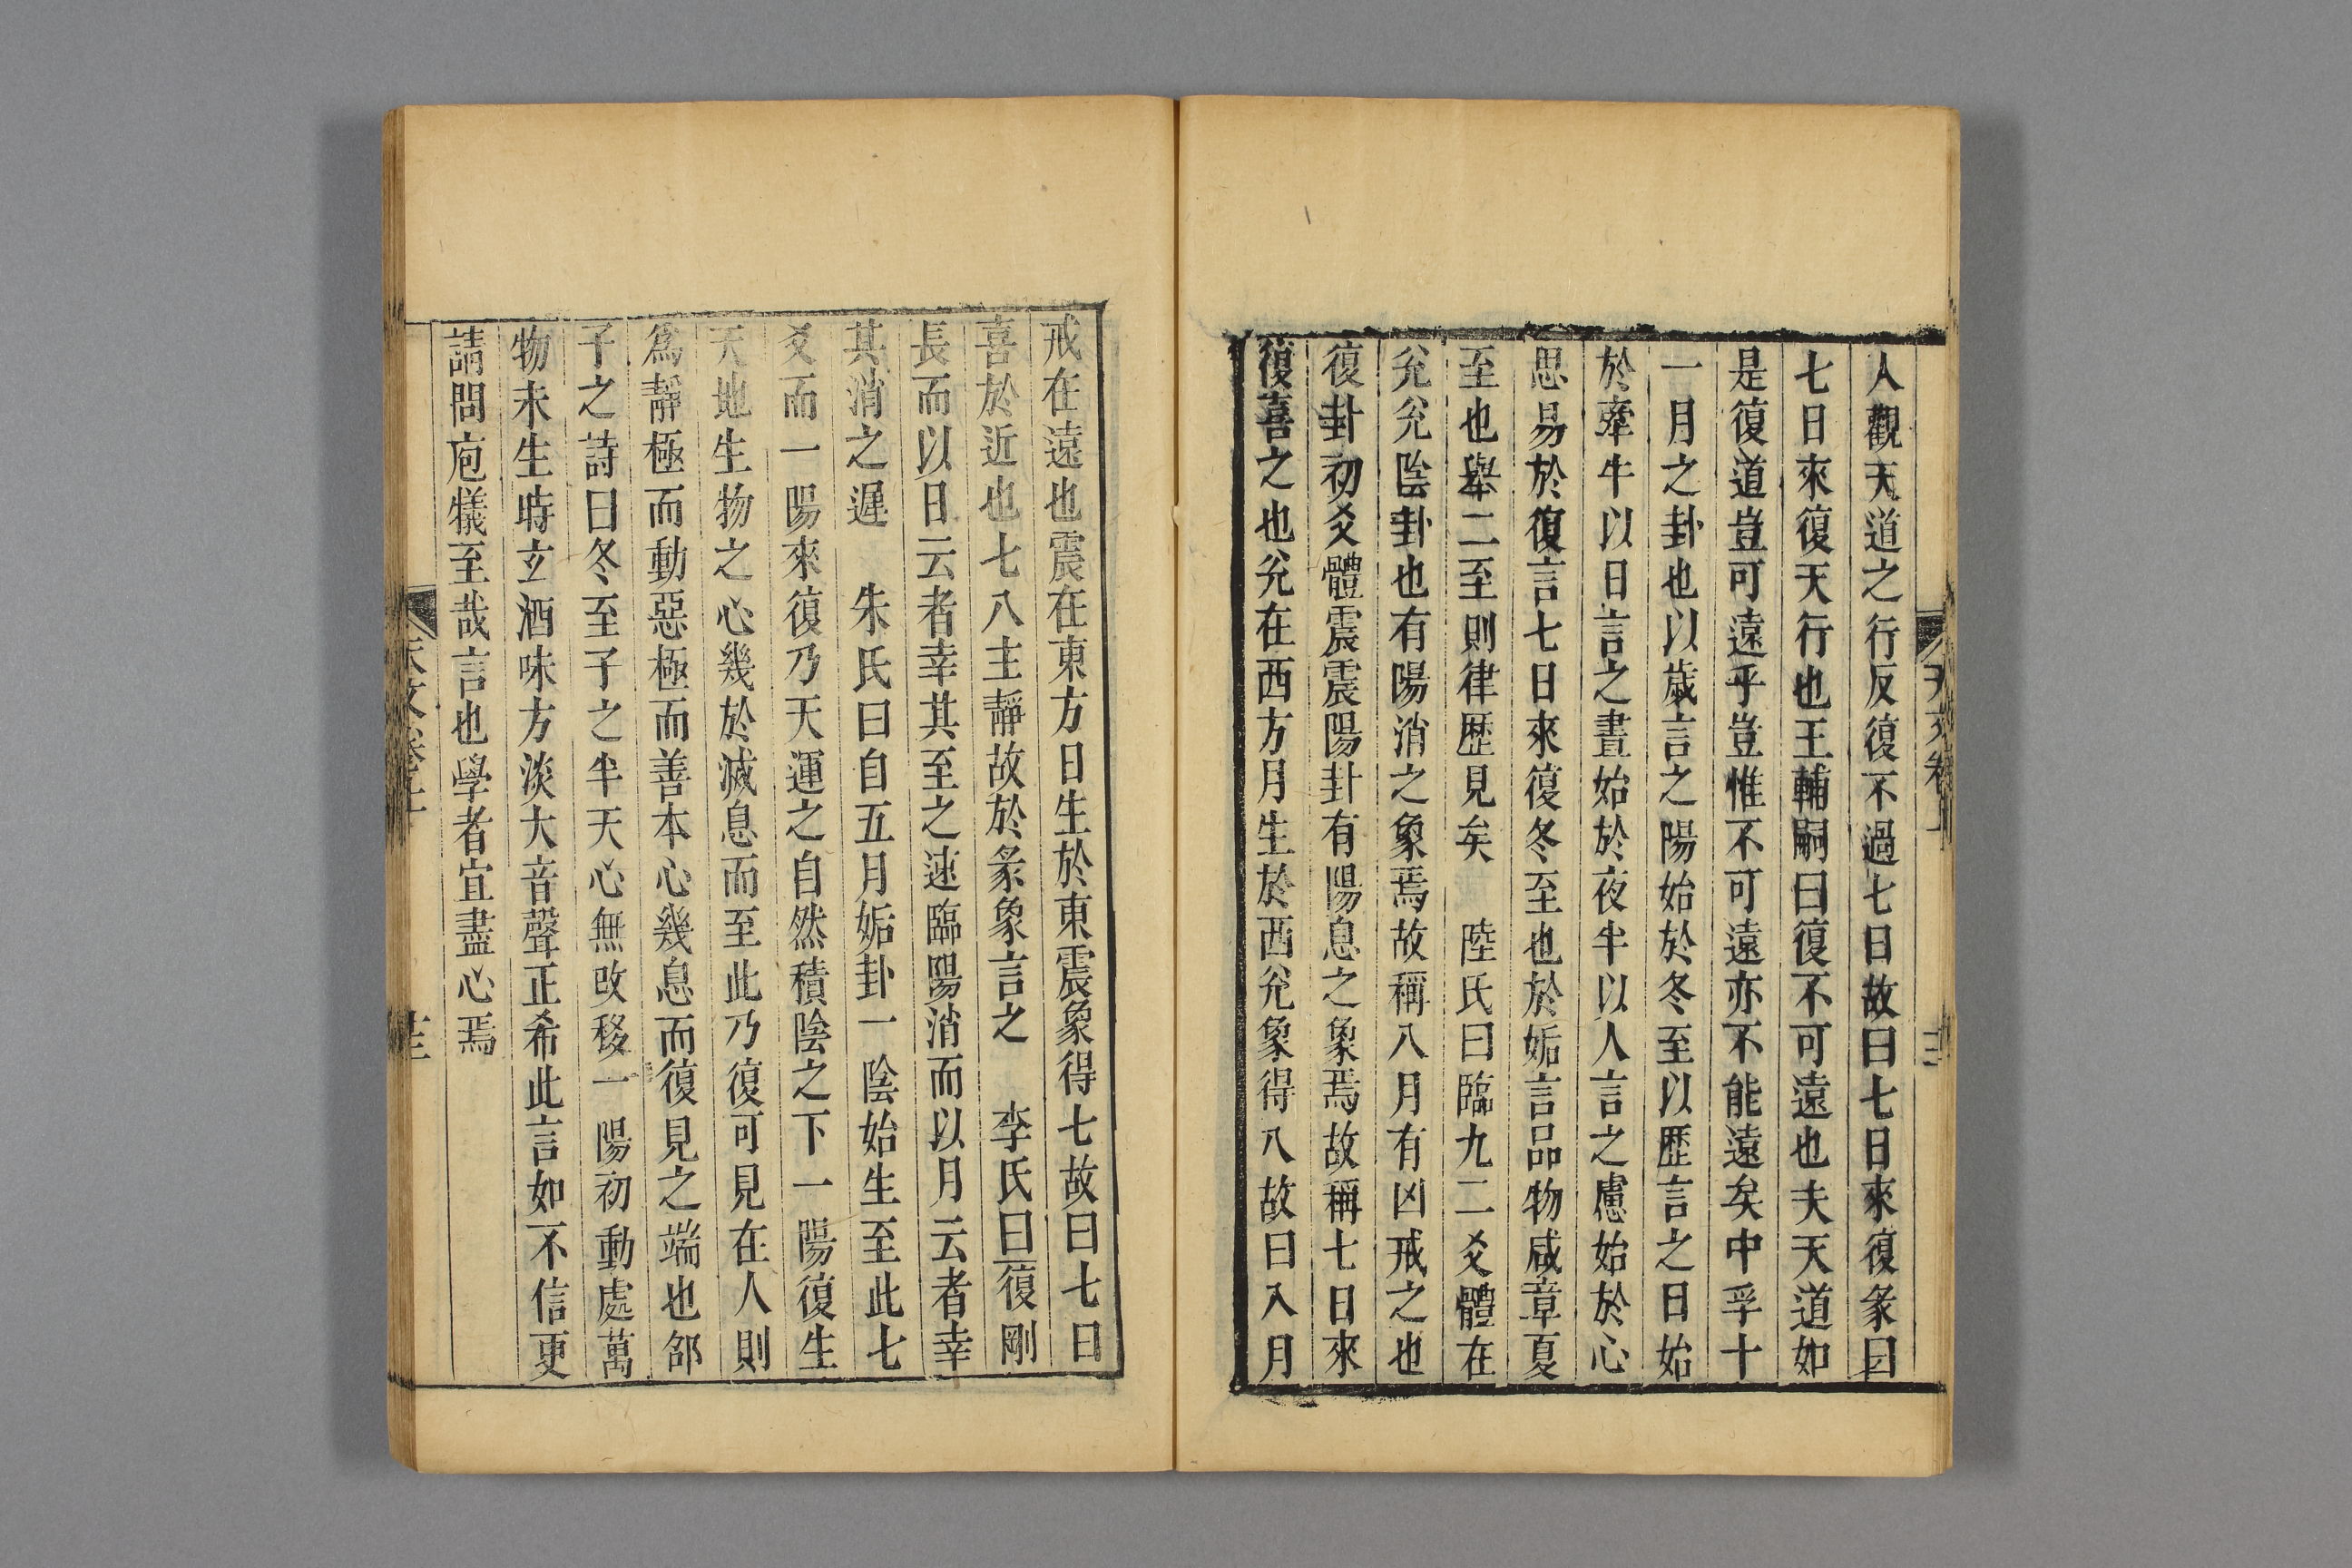 人觀天道之行反復不過七日故曰七日來復彖曰
七日來復天行也王輔嗣曰復不可遠也夫天道如
是復道豈可遠乎豈惟不可遠亦不能遠矣中孚十
一月之卦也以歲言之陽始於冬至以歷言之日始
於牽牛以日言之晝始於夜半以人言之慮始於心
思易於復言七日來復冬至也於姤言品物咸章夏
至也舉二至則律歷見矣 陸氏曰臨九二爻體在
兊兊陰卦也有陽消之象焉故稱八月有凶戒之也
復卦初爻體震震陽卦有陽息之象焉故稱七日來
復喜之也兊在西方月生於西兊象得八故曰八月
戒在遠也震在東方日生於東震象得七故曰七日
喜於近也七八主靜故於彖象言之 李氏曰復剛
長而以日云者幸其至之速臨陽消而以月云者幸
其消之遲 朱氏曰自五月姤卦一陰始生至此七
爻而一陽來復乃天運之自然積陰之下一陽復生
天地生物之心幾於滅息而至此乃復可見在人則
爲靜極而動惡極而善本心幾息而復見之端也邵
子之詩曰冬至子之半天心無改移一陽初動處萬
物未生時玄酒味方淡大音聲正希此言如不信更
請問庖犧至哉言也學者宜盡心焉